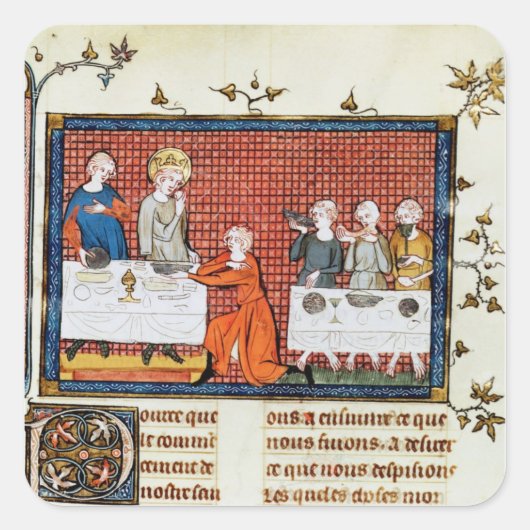 ourre que
le comme
cement de
nostre sau
ons a ensuiure ce que
nous fuions. a desirer
ce que nous despisions
les queles choses mor